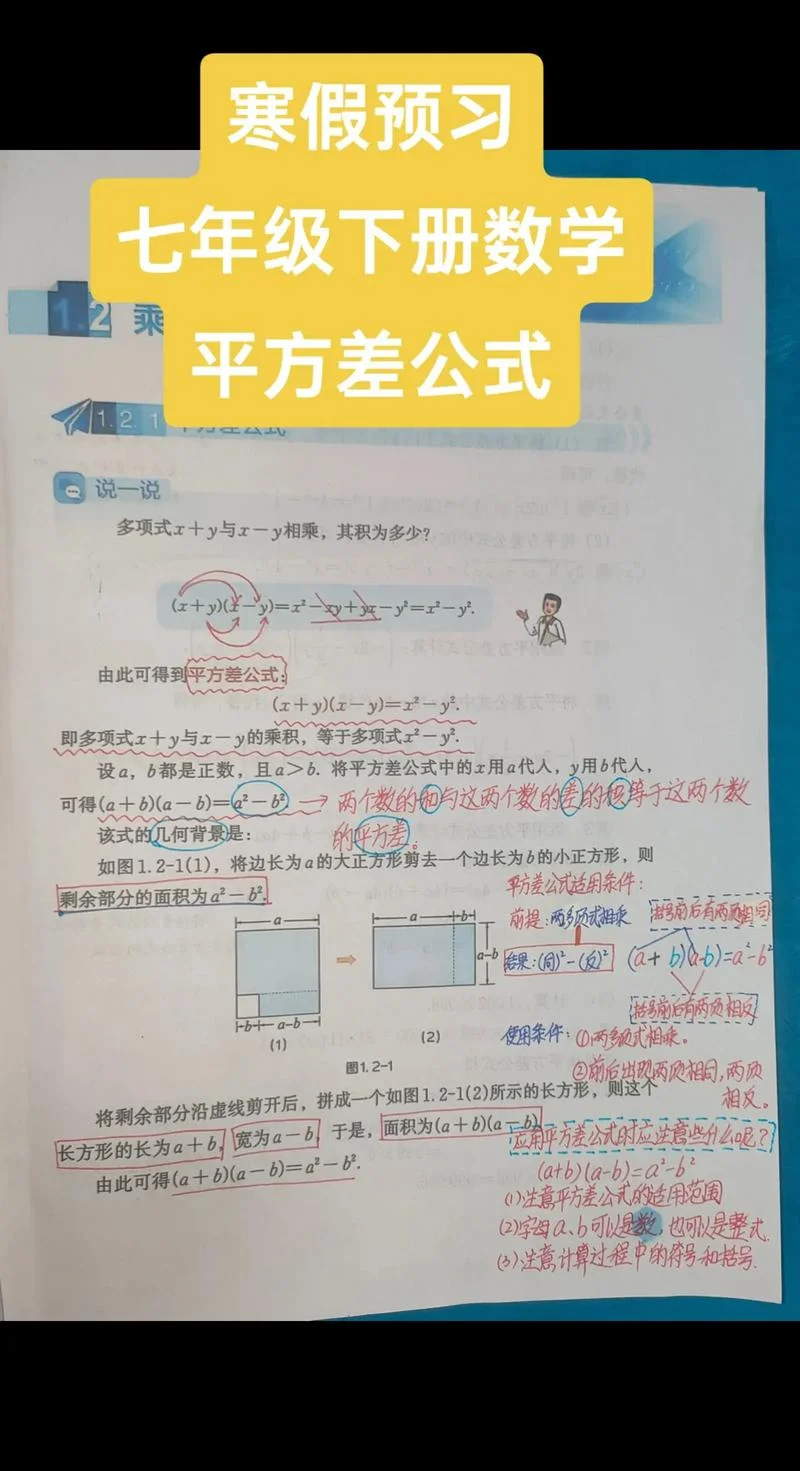 寒假预习
七年级下册数学
平方差公式
1.2 乘
1.2.1 平方差公式
说一说
多项式x+y与x-y相乘，其积为多少？
(x+y)(x-y)=x²-xy+yx-y²=x²-y².
由此可得到平方差公式：
(x+y)(x-y)=x²-y².
即多项式x+y与x-y的乘积，等于多项式x²-y².
设a，b都是正数，且a>b. 将平方差公式中的x用a代入，y用b代入，
可得(a+b)(a-b)=a²-b² → 两个数的和与这两个数的差的积等于这两个数
的平方差。
该式的几何背景是：
如图1.2-1(1)，将边长为a的大正方形剪去一个边长为b的小正方形，则
剩余部分的面积为a²-b².
平方差公式适用条件：
前提：两多项式相乘
括号前后有两项相同
结果：(同)²-(反)²
(a+b)(a-b)=a²-b²
括号前后有两项相反
a
a
b
a-b
b
a-b
(1)
(2)
图1.2-1
使用条件：①两多项式相乘。
②前后出现两项相同，两项
相反。
将剩余部分沿虚线剪开后，拼成一个如图1.2-1(2)所示的长方形，则这个
长方形的长为a+b，宽为a-b，于是，面积为(a+b)(a-b)
由此可得(a+b)(a-b)=a²-b².
应用平方差公式时应注意些什么呢？
(a+b)(a-b)=a²-b²
(1)注意平方差公式的适用范围
(2)字母a、b可以是数，也可以是整式.
(3)注意计算过程中的符号和括号.